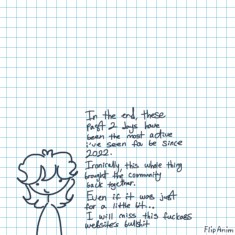 In the end, these
past 2 days have
been the most active
i've seen fa be since
2022.
Ironically, this whole thing
brought the community
back together.
Even if it was just
for a little bit...
I will miss this fuckass
website's bullshit
FlipAnim